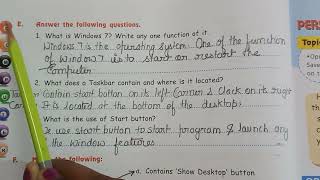 E. Answer the following questions.
1. What is Windows 7? Write any one function of it.
Windows 7 is the operating system. One of the function
of Window 7 is to start or restart the
Computer.
2. What does a Taskbar contain and where is it located?
Contain start button on its left Corner & Clock on its right
It is located at the bottom of the desktop.
What is the use of Start button?
use start button to start program & launch any
the Window features
the following:
a. Contains 'Show Desktop' button
PER
Topi